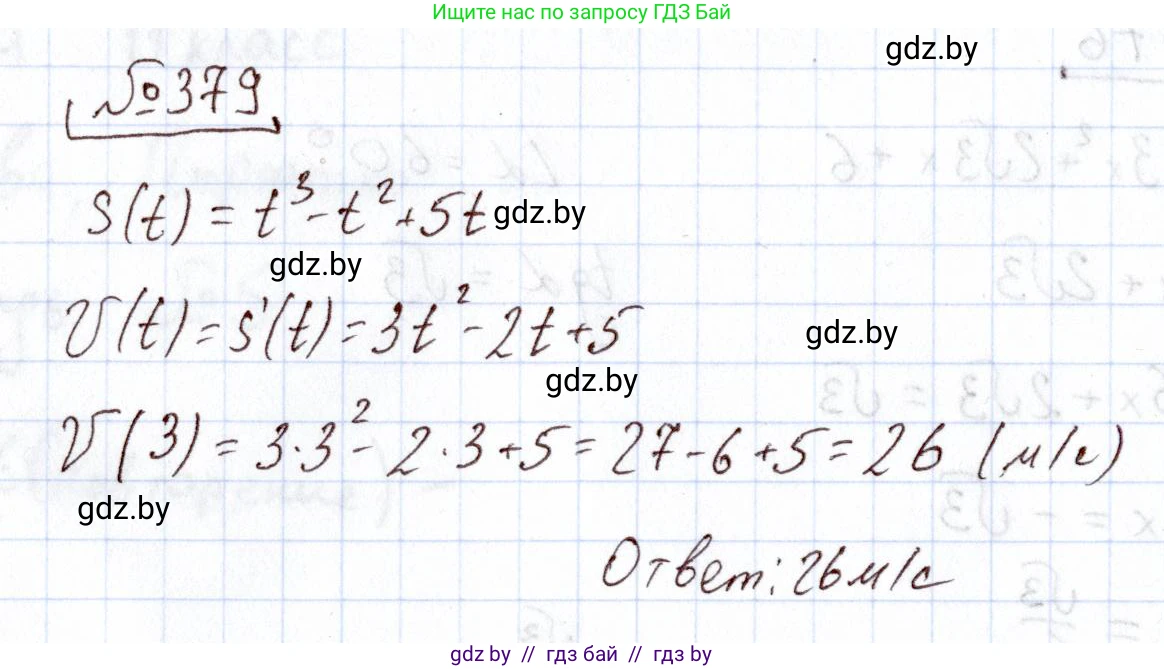 Ищите нас по запросу ГДЗ Бай
gdz.by
№379
s(t) = t³ - t² + 5t gdz.by
gdz.by
v(t) = s'(t) = 3t² - 2t + 5
gdz.by
gdz.by
v(3) = 3·3² - 2·3 + 5 = 27 - 6 + 5 = 26 (м/с)
gdz.by
Ответ: 26 м/с
gdz.by // гдз бай // гдз by